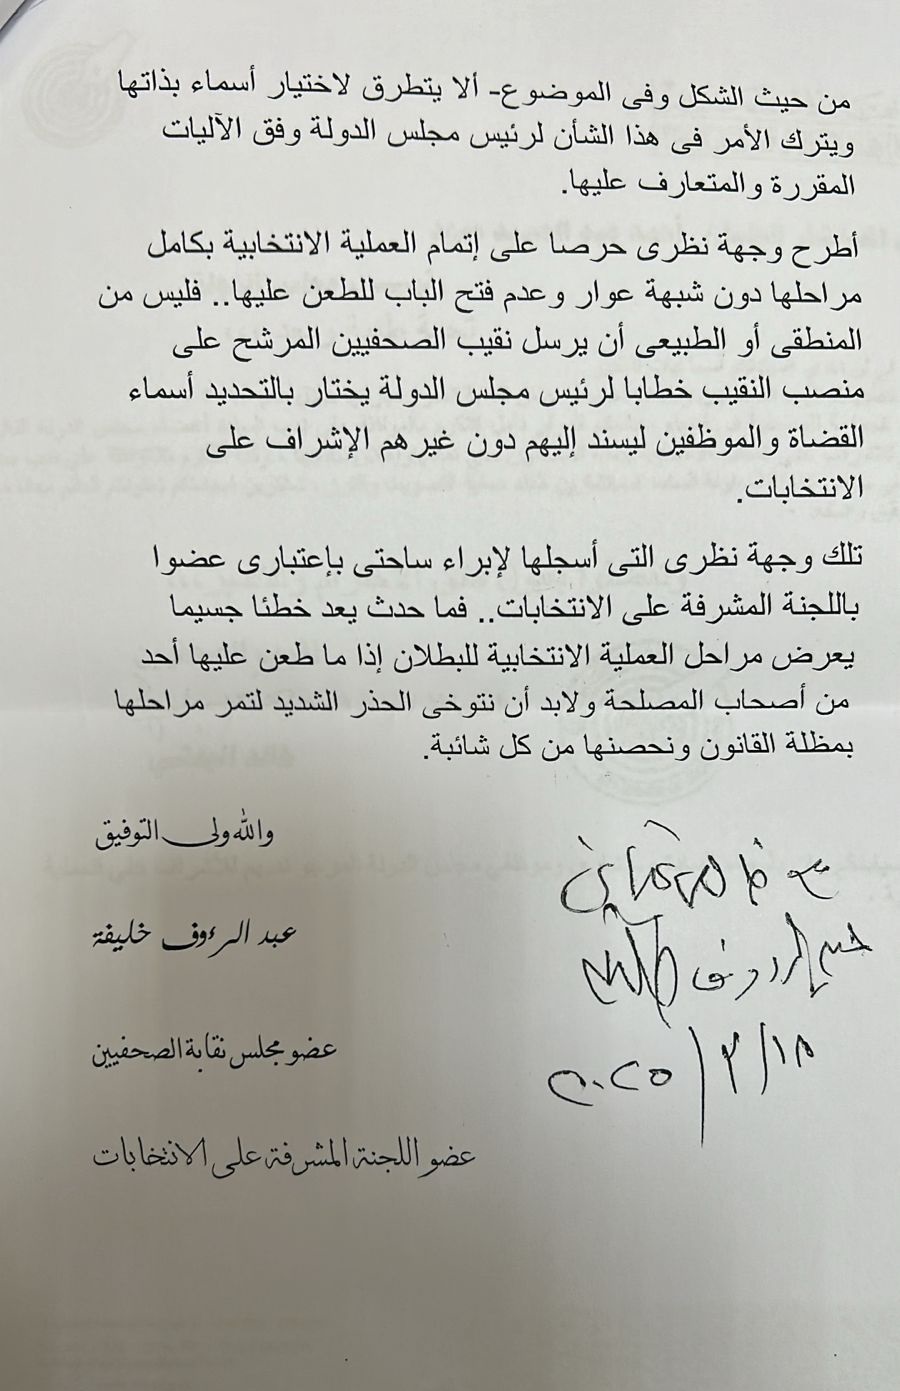 من حيث الشكل وفى الموضوع- ألا يتطرق لاختيار أسماء بذاتها
ويترك الأمر فى هذا الشأن لرئيس مجلس الدولة وفق الآليات
المقررة والمتعارف عليها.
أطرح وجهة نظرى حرصا على إتمام العملية الانتخابية بكامل
مراحلها دون شبهة عوار وعدم فتح الباب للطعن عليها.. فليس من
المنطقى أو الطبيعى أن يرسل نقيب الصحفيين المرشح على
منصب النقيب خطابا لرئيس مجلس الدولة يختار بالتحديد أسماء
القضاة والموظفين ليسند إليهم دون غيرهم الإشراف على
الانتخابات.
تلك وجهة نظرى التى أسجلها لإبراء ساحتى بإعتبارى عضوا
باللجنة المشرفة على الانتخابات.. فما حدث يعد خطئا جسيما
يعرض مراحل العملية الانتخابية للبطلان إذا ما طعن عليها أحد
من أصحاب المصلحة ولابد أن نتوخى الحذر الشديد لتمر مراحلها
بمظلة القانون ونحصنها من كل شائبة.
والله ولى التوفيق
عبد الرءوف خليفة
عضو مجلس نقابة الصحفيين
عضو اللجنة المشرفة على الانتخابات
١٨/٣/٢٠٢٥